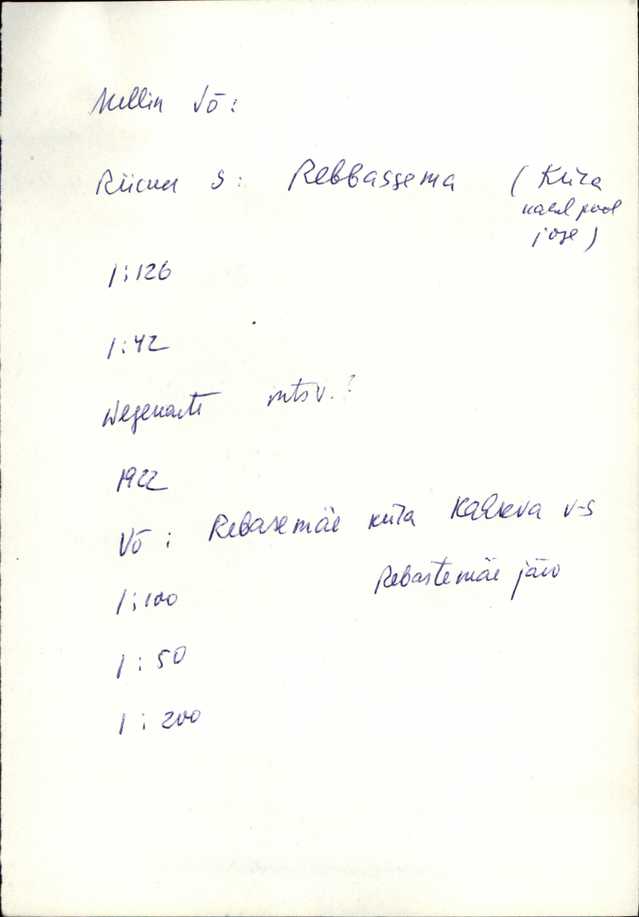 Mellin Võ:
Rücker S: Rebbassema (Küla
kahel pool
jõge)
1:126
1:42
Wegekarte mtsv.?
1922
Võ: Rebasemäe küla Kaleva v-s
1:100 Rebastemäe järv
1:50
1:200